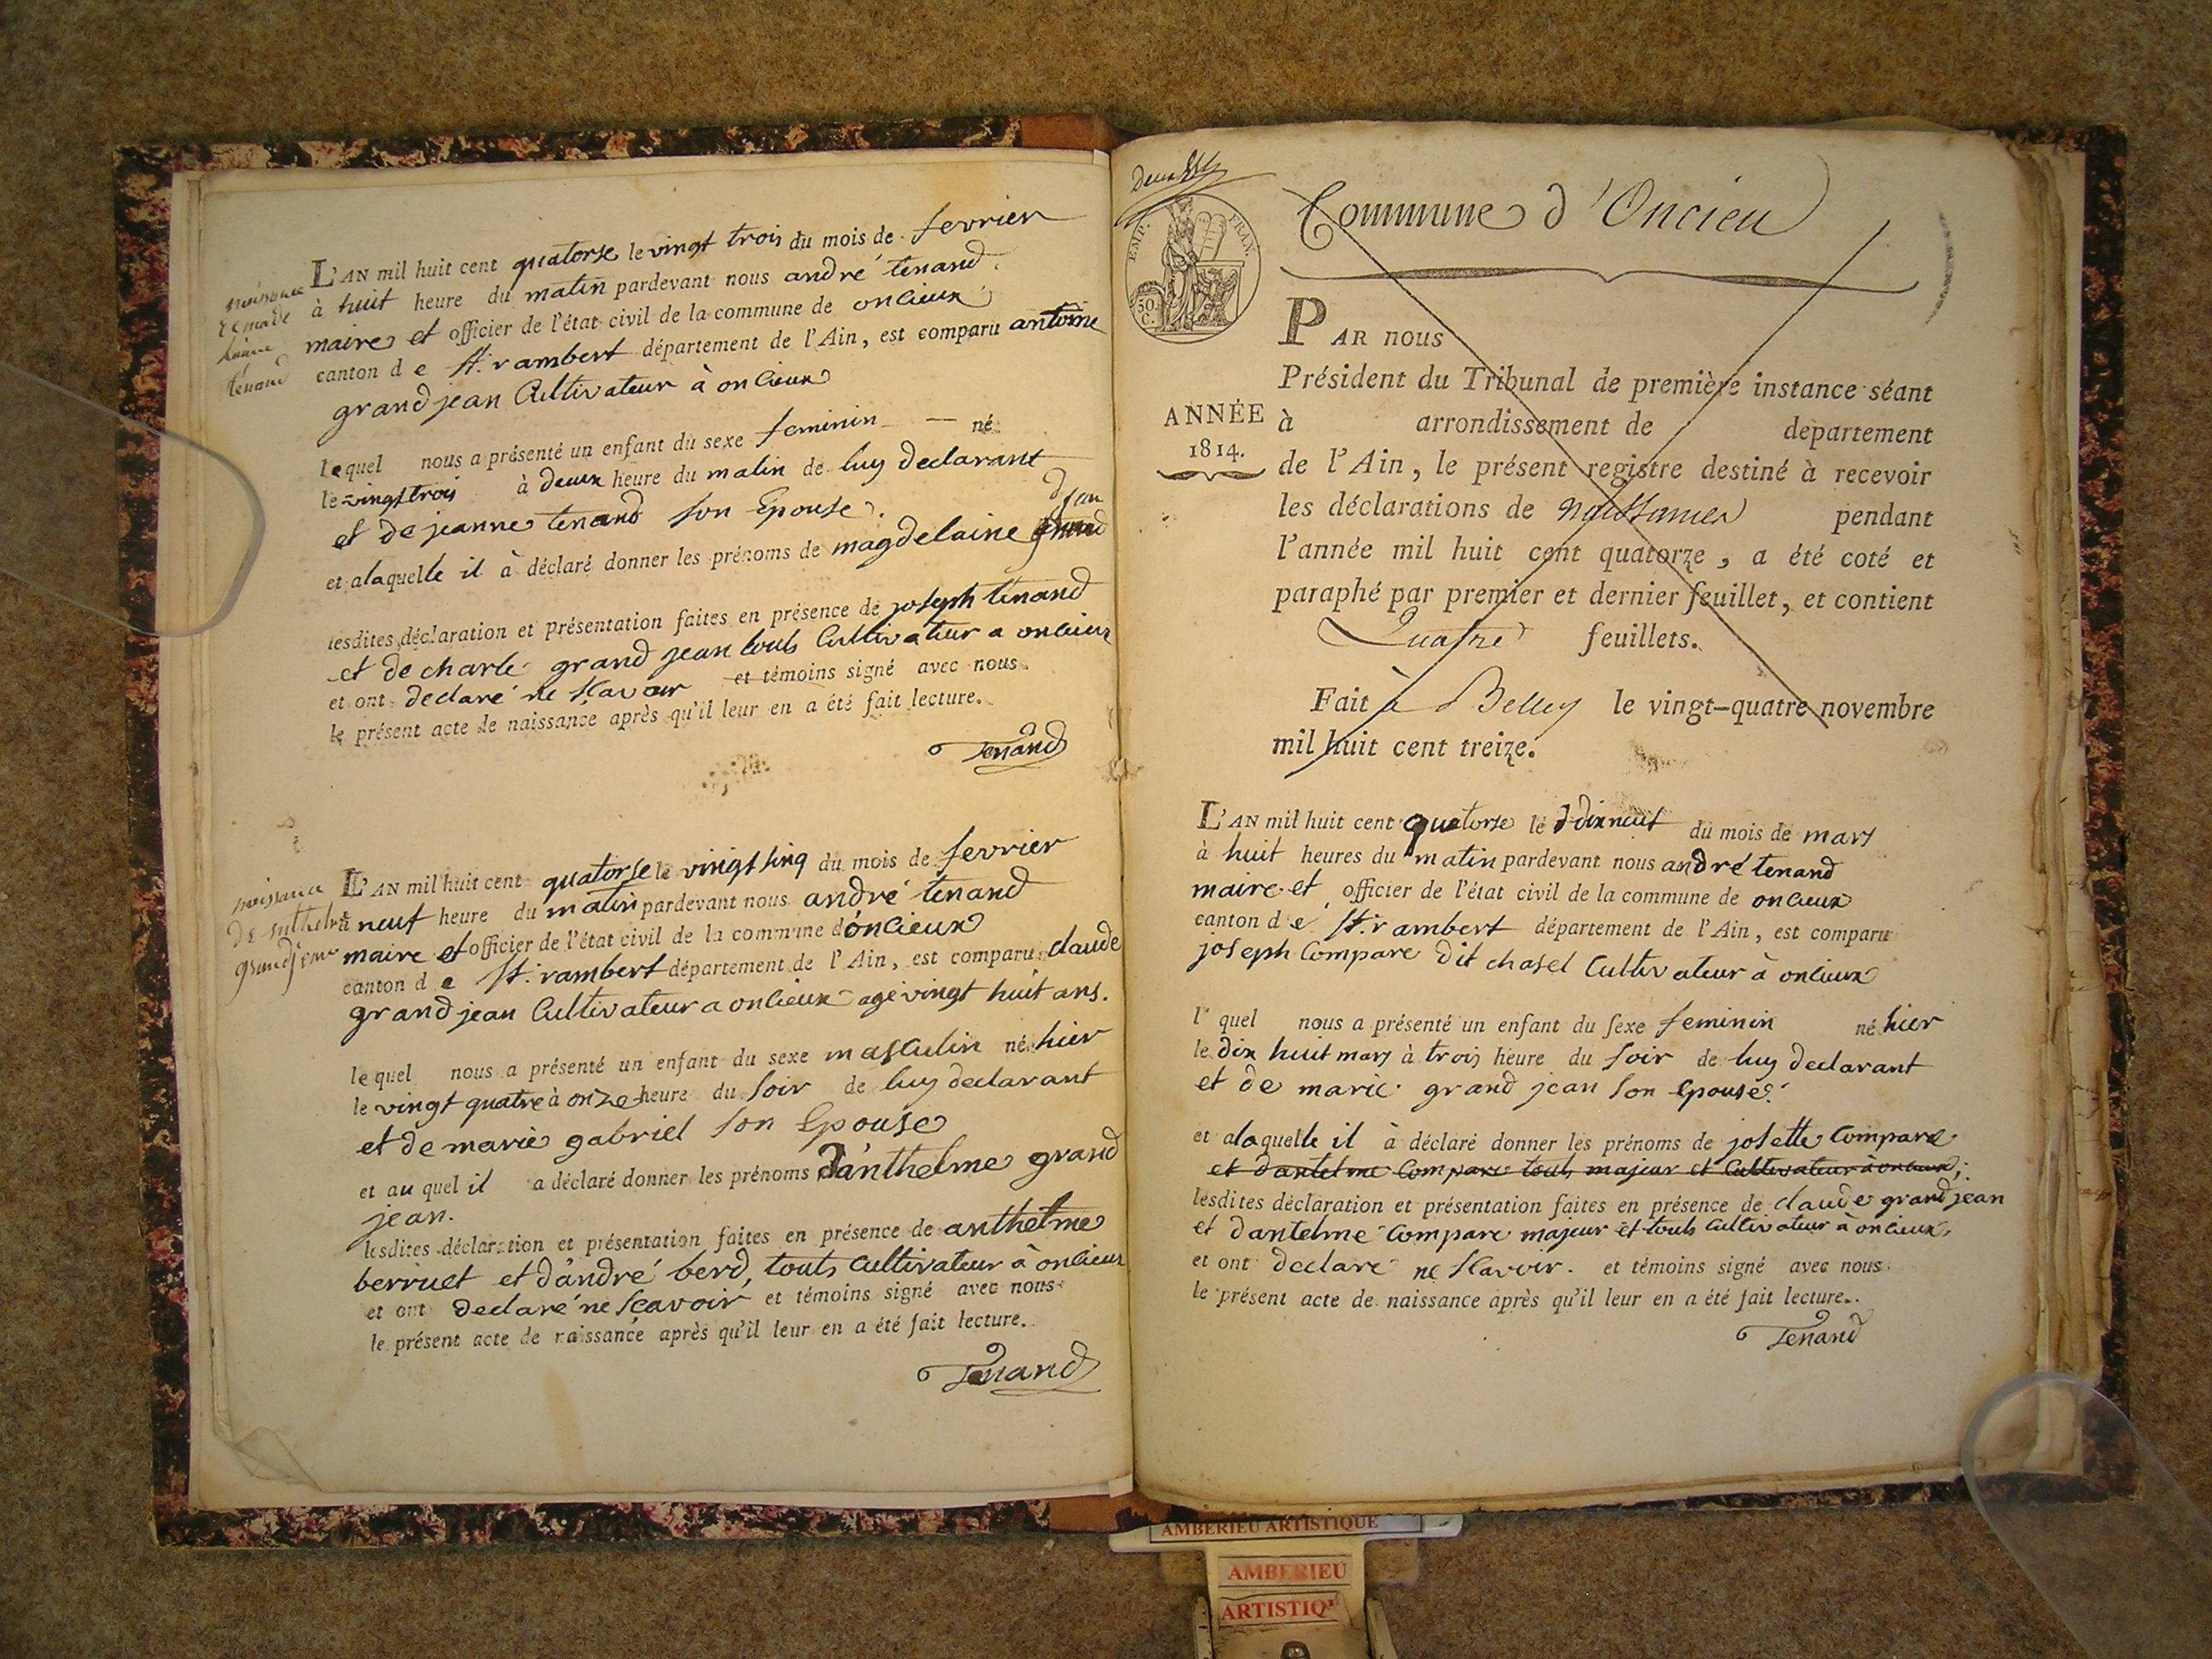 L'AN mil huit cent quatorse le vingt trois du mois de fevrier
à huit heure du matin pardevant nous andré tenand
maire et officier de l'état civil de la commune de oncieux
canton de St. rambert département de l'Ain, est comparu antoine
grand jean Cultivateur à oncieux
lequel nous a présenté un enfant du sexe feminin — né
le vingt trois à deux heure du matin de luy declarant
et de jeanne tenand son Epouse.
et alaquelle il à déclaré donner les prénoms de magdelaine
lesdites déclaration et présentation faites en présence de joseph tenand
et de charle grand jean touts Cultivateur a oncieux
et ont declaré ne sçavoir et témoins signé avec nous
le présent acte de naissance après qu'il leur en a été fait lecture.
Tenand
naissance
tenand
L'AN mil huit cent quatorse le vingt sinq du mois de fevrier
à neuf heure du matin pardevant nous andré tenand
maire et officier de l'état civil de la commune d'oncieux
canton de St. rambert département de l'Ain, est comparu claude
grand jean Cultivateur a oncieux agé vingt huit ans.
lequel nous a présenté un enfant du sexe masculin né hier
le vingt quatre à onze heure du soir de luy declarant
et de marie gabriel son Epouse
et au quel il a déclaré donner les prénoms d'anthelme grand
jean.
lesdites déclaration et présentation faites en présence de anthelme
berruet et d'andré berd, touts cultivateur à oncieux
et ont declaré ne sçavoir et témoins signé avec nous
le présent acte de naissance après qu'il leur en a été fait lecture.
Tenand
naissance
grandjean
Commune d'Oncieu
EMP. FRAN.
50
C.
ANNÉE
1814.
PAR nous
Président du Tribunal de première instance séant
à arrondissement de departement
de l'Ain, le présent registre destiné à recevoir
les déclarations de naissances pendant
l'année mil huit cent quatorze, a été coté et
paraphé par premier et dernier feuillet, et contient
Quatre feuillets.
Fait à Belley le vingt-quatre novembre
mil huit cent treize.
L'AN mil huit cent quatorse le dixneuf du mois de mars
à huit heures du matin pardevant nous andré tenand
maire et officier de l'état civil de la commune de oncieux
canton de St. rambert département de l'Ain, est comparu
joseph Compare dit chasel Cultivateur à oncieux
l quel nous a présenté un enfant du sexe feminin né hier
le dix huit mars à trois heure du soir de luy declarant
et de marie grand jean son Epouse.
et alaquelle il à déclaré donner les prénoms de josette Compare
et dantelme Compare touts majeur et Cultivateur à oncieux;
lesdites déclaration et présentation faites en présence de claude grand jean
et dantelme Compare majeur et touts cultivateur à oncieux,
et ont declaré ne sçavoir. et témoins signé avec nous
le présent acte de naissance après qu'il leur en a été fait lecture.
Tenand
AMBERIEU ARTISTIQUE
AMBERIEU
ARTISTIQ